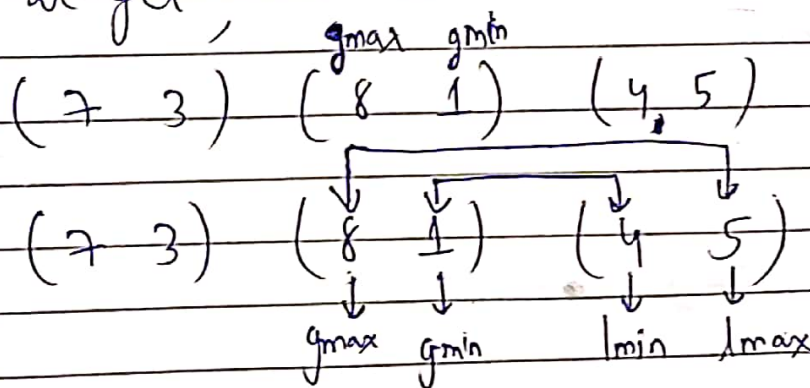 we get,
gmax gmin
(7 3) (8 1) (4, 5)
(7 3) (8 1) (4 5)
gmax gmin lmin lmax